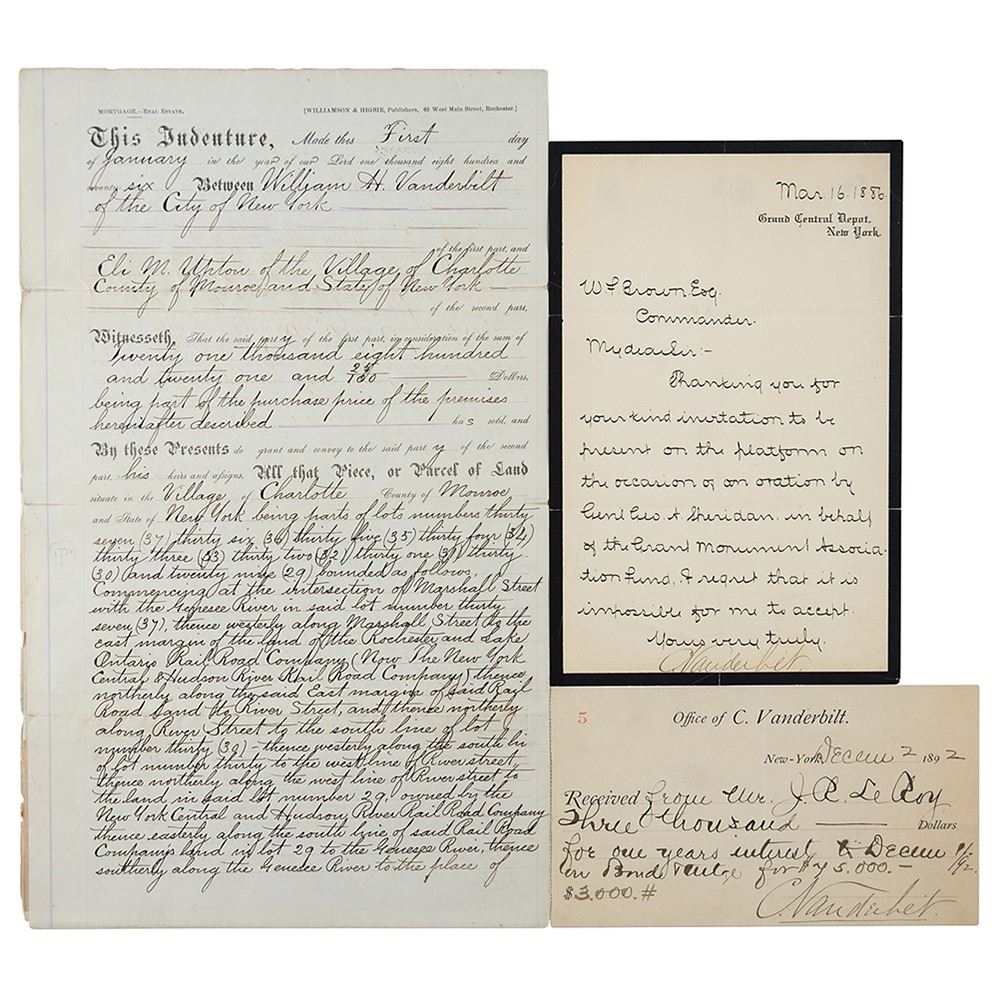 MORTGAGE.—REAL ESTATE. [WILLIAMSON & HIGBIE, Publishers, 62 West Main Street, Rochester.]
This Indenture, Made this First day
of January in the year of our Lord one thousand eight hundred and
seventy six Between William H. Vanderbilt
of the City of New York
of the first part, and
Eli M. Upton of the Village of Charlotte
County of Monroe and State of New York
of the second part,
Witnesseth, That the said party of the first part, in consideration of the sum of
Twenty one thousand eight hundred
and twenty one and 23/100 Dollars,
being part of the purchase price of the premises
hereinafter described has sold, and
By these Presents do grant and convey to the said party of the second
part, his heirs and assigns, All that Piece, or Parcel of Land
situate in the Village of Charlotte County of Monroe
and State of New York being parts of lots numbers thirty
seven (37) thirty six (36) thirty five (35) thirty four (34)
thirty three (33) thirty two (32) thirty one (31) thirty
(30) and twenty nine (29) bounded as follows,
Commencing at the intersection of Marshall Street
with the Genesee River in said lot number thirty
seven (37), thence westerly along Marshall Street to the
east margin of the land of the Rochester and Lake
Ontario Rail Road Company (Now The New York
Central & Hudson River Rail Road Company) thence
northerly along the said East margin of said Rail
Road land to River Street, and thence northerly
along River Street to the south line of lot
number thirty (30) - thence westerly along the south li
of lot number thirty to the west line of River street,
thence northerly along the west line of River street to
the land in said lot number 29, owned by the
New York Central and Hudson River Rail Road Company
thence easterly along the south line of said Rail Road
Company's land in lot 29 to the Genesee River, thence
southerly along the Genesee River to the place of
Mar. 16. 1886
Grand Central Depot.
New York.
Brown Esq.
Commander.
My dear Sir:-
Thanking you for
your kind invitation to be
present on the platform on
the occasion of an oration by
Genl Geo A. Sheridan. in behalf
of the Grant Monument Associa-
tion Fund, I regret that it is
impossible for me to accept.
Yours very truly.
C Vanderbilt
5 Office of C. Vanderbilt.
New-York, Decem 2 1892
Received from Mr. J. R. Le Roy
Three thousand Dollars
for one years interest to Decem 1/92.
on Bond & Mtge for $75.000.-
$3.000.#
C Vanderbilt.